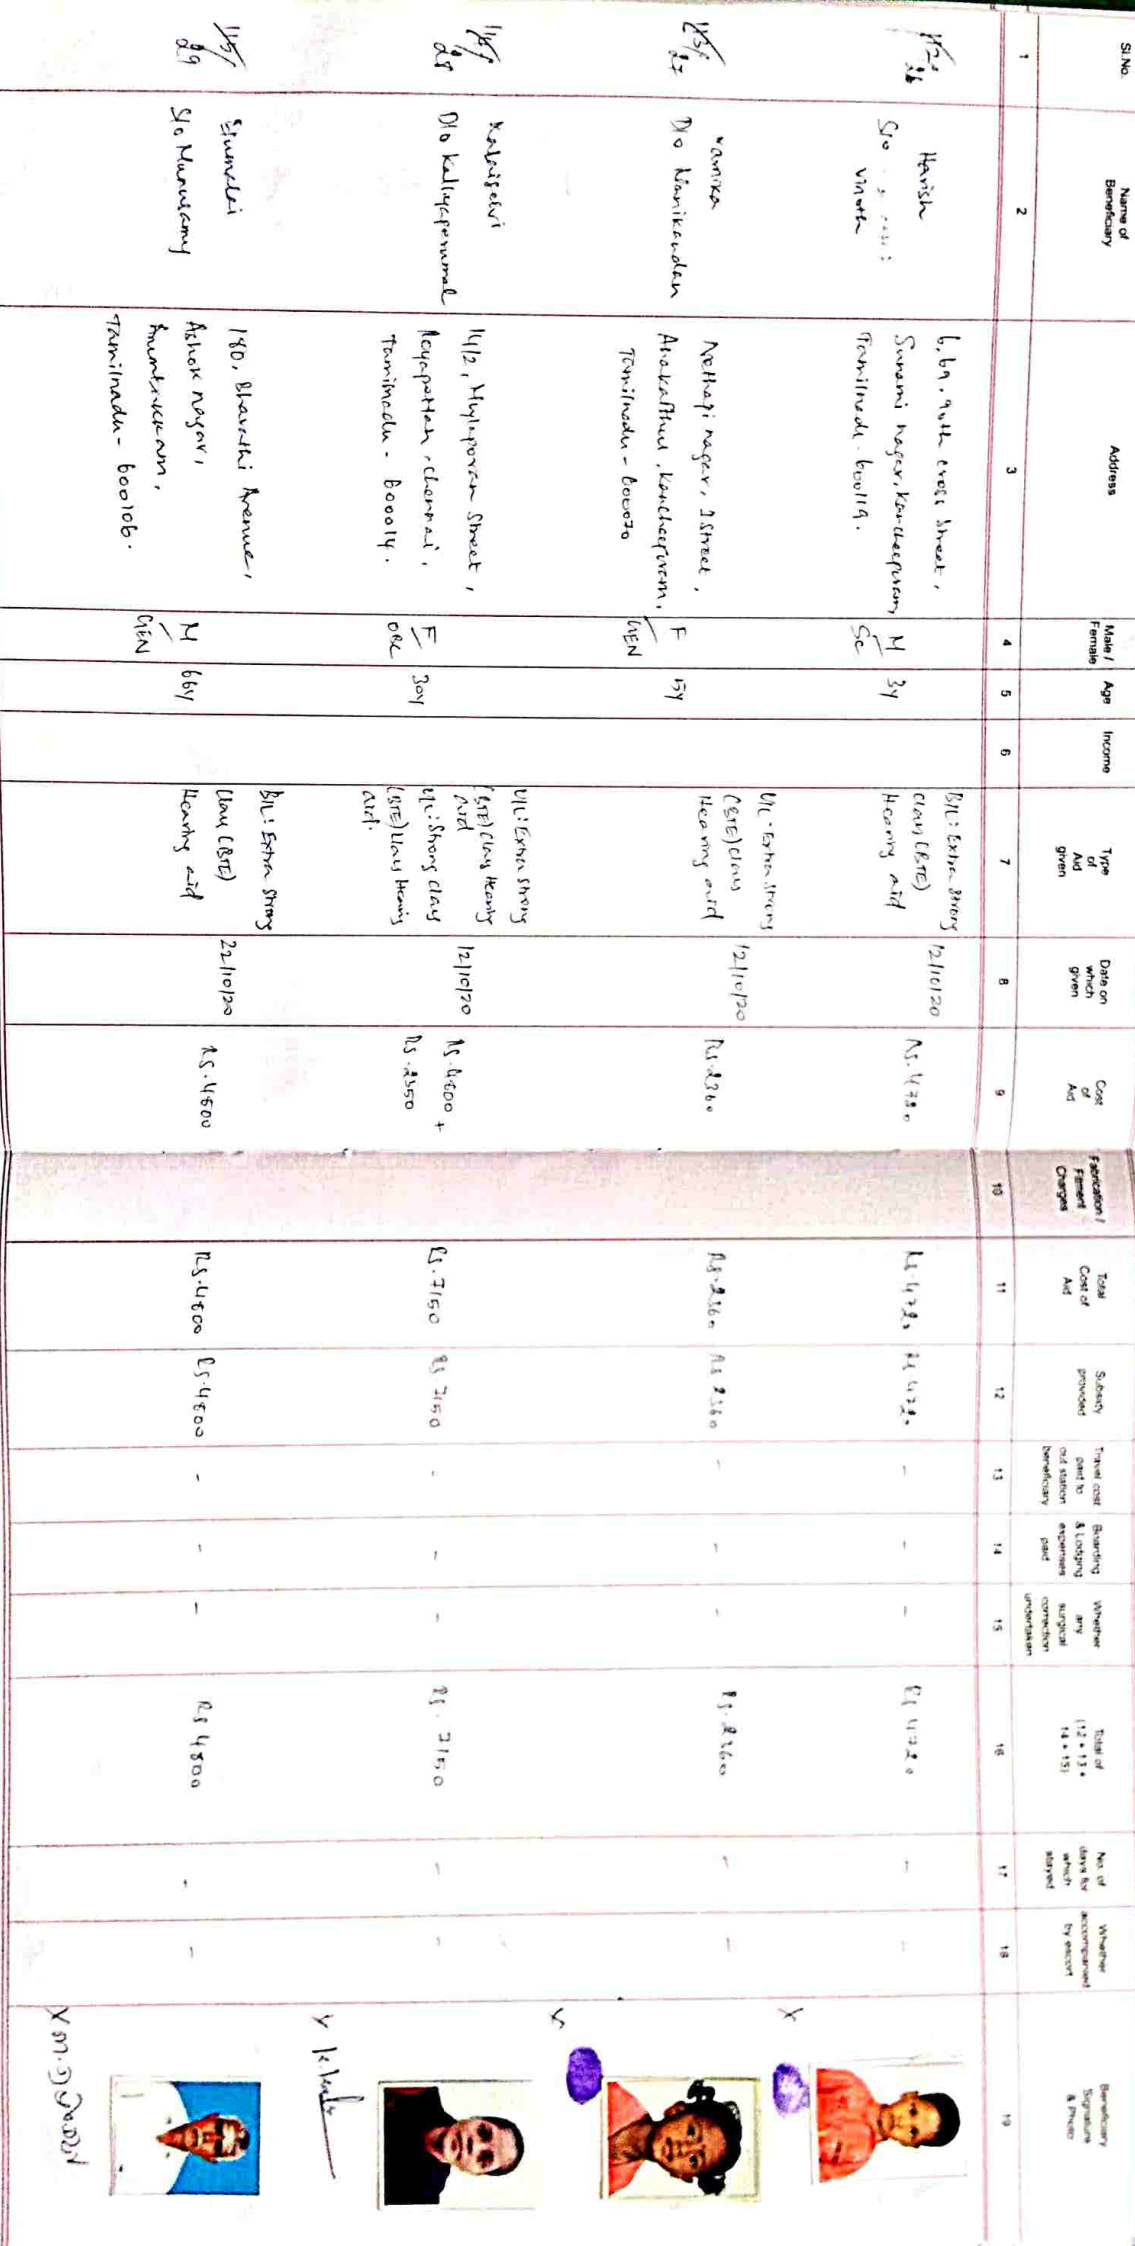 Sl.No.
Name of
Beneficiary
Address
Male /
Female
Age
Income
Type
of
Aid
given
Date on
which
given
Cost
of
Aid
Fabrication /
Fitment
Charges
Total
Cost of
Aid
Subsidy
provided
Travel cost
paid to
out station
beneficiary
Boarding
& Lodging
expenses
paid
Whether
any
surgical
correction
undertaken
Total of
(12 + 13 +
14 + 15)
No. of
days for
which
stayed
Whether
accompanied
by escort
Beneficiary
Signature
& Photo
1 2 3 4 5 6 7 8 9 10 11 12 13 14 15 16 17 18 19
26
Harish
S/o
Vinoth
cross street,
Sunami nagar, Kancheepuram,
Tamilnadu - 600119.
M
SC
3y
B/L: Extra Strong
class (BTE)
Hearing aid
12/10/20
Rs. 4720
Rs. 4720
Rs 4720
-
-
-
Rs 4720
-
-
X
27
D/o Manikandan
Nethaji nagar, 1 Street,
Anakaputhur, Kancheepuram,
Tamilnadu - 600070
F
GEN
15y
U/L: Extra Strong
(BTE) class
Hearing aid
12/10/20
Rs. 2360
Rs. 2360
Rs 2360
-
-
-
Rs. 2360
-
-
X
28
Kalaiselvi
D/o Kaliyaperumal
14/2, Street,
Royapettah, Chennai,
Tamilnadu - 600014.
F
OBC
30y
U/L: Extra Strong
(BTE) Class Hearing
aid
U/L: Strong class
(BTE) Class Hearing
aid.
12/10/20
Rs. 4800 +
Rs. 2350
Rs. 7150
Rs 7150
-
-
-
Rs. 7150
-
-
X
115/
29
Elumalai
S/o Munusamy
180, Bharathi Avenue,
Ashok nagar,
Tamilnadu - 600106.
M
GEN
66y
B/L: Extra Strong
Class (BTE)
Hearing aid
22/10/20
Rs. 4800
Rs. 4800
Rs. 4800
-
-
-
Rs 4800
-
-
X